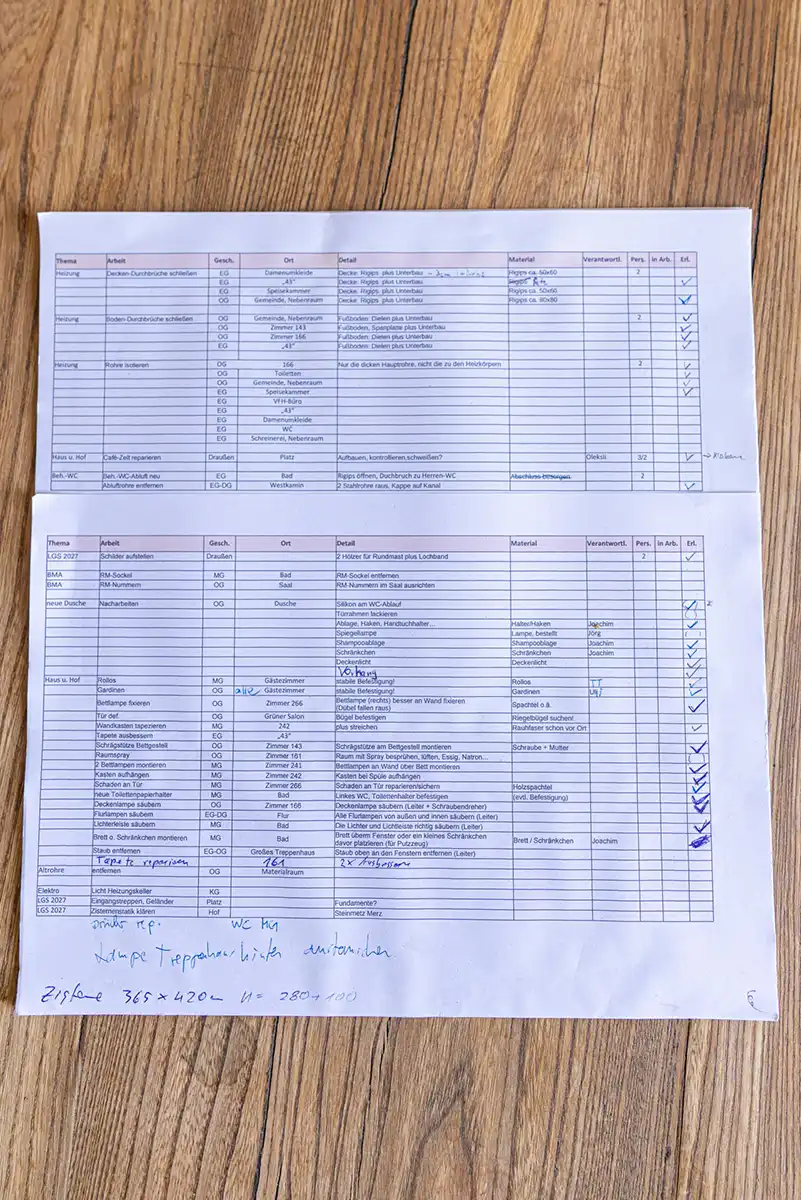 Thema Arbeit Gesch. Ort Detail Material Verantwortl. Pers. in Arb. Erl.
Heizung Decken-Durchbrüche schließen EG Damenumkleide Decke: Rigips plus Unterbau Rigips ca. 60x60 2
EG „43“ Decke: Rigips plus Unterbau Rigips
EG Speisekammer Decke: Rigips plus Unterbau Rigips ca. 50x60
OG Gemeinde, Nebenraum Decke: Rigips plus Unterbau Rigips ca. 80x80
Heizung Boden-Durchbrüche schließen OG Gemeinde, Nebenraum Fußboden: Dielen plus Unterbau 2
OG Zimmer 143 Fußboden, Spanplatte plus Unterbau
OG Zimmer 166 Fußboden: Dielen plus Unterbau
EG „43“ Fußboden: Dielen plus Unterbau
Heizung Rohre isolieren DG 166 Nur die dicken Hauptrohre, nicht die zu den Heizkörpern 2
OG Toiletten
OG Gemeinde, Nebenraum
EG Speisekammer
EG VFH-Büro
EG „43“
EG Damenumkleide
EG WC
EG Schreinerei, Nebenraum
Haus u. Hof Café-Zelt reparieren Draußen Platz Aufbauen, kontrollieren,schweißen? Oleksii 3/2
Beh.-WC Beh.-WC-Abluft neu EG Bad Rigips öffnen, Duchbruch zu Herren-WC Abschluss besorgen 2
Abluftrohre entfernen EG-DG Westkamin 2 Stahlrohre raus, Kappe auf Kanal
Thema Arbeit Gesch. Ort Detail Material Verantwortl. Pers. in Arb. Erl.
LGS 2027 Schilder aufstellen Draußen 2 Hölzer für Rundmast plus Lochband 2
BMA RM-Sockel MG Bad RM-Sockel entfernen
BMA RM-Nummern OG Saal RM-Nummern im Saal ausrichten
neue Dusche Nacharbeiten OG Dusche Silikon am WC-Ablauf
Türrahmen lackieren
Ablage, Haken, Handtuchhalter... Halter/Haken Joachim
Spiegellampe Lampe, bestellt Jörg
Shampooablage Shampooblage Joachim
Schränkchen Schränkchen Joachim
Deckenlicht Deckenlicht
Vorhang
Haus u. Hof Rollos MG Gästezimmer stabile Befestigung! Rollos TT
Gardinen OG alle Gästezimmer stabile Befestigung! Gardinen
Bettlampe fixieren OG Zimmer 266 Bettlampe (rechts) besser an Wand fixieren Spachtel o.ä.
(Dübel fallen raus)
Tür def. OG Grüner Salon Bügel befestigen Riegelbügel suchen!
Wandkasten tapezieren MG 242 plus streichen Rauhfaser schon vor Ort
Tapete ausbessern EG „43“
Schrägstütze Bettgestell OG Zimmer 143 Schrägstütze am Bettgestell montieren Schraube + Mutter
Raumspray OG Zimmer 161 Raum mit Spray besprühen, lüften, Essig, Natron...
2 Bettlampen montieren MG Zimmer 241 Bettlampen an Wand über Bett montieren
Kasten aufhängen MG Zimmer 242 Kasten bei Spüle aufhängen
Schaden an Tür MG Zimmer 266 Schaden an Tür reparieren/sichern Holzspachtel
neue Toilettenpapierhalter MG Bad Linkes WC, Toilettenhalter befestigen (evtl. Befestigung)
Deckenlampe säubern OG Zimmer 166 Deckenlampe säubern (Leiter + Schraubendreher)
Flurlampen säubern EG-DG Flur Alle Flurlampen von außen und innen säubern (Leiter)
Lichterleiste säubern MG Bad Die Lichter und Lichtleiste richtig säubern (Leiter)
Brett o. Schränkchen montieren MG Bad Brett überm Fenster oder ein kleines Schränkchen Brett / Schränkchen Joachim
davor platzieren (für Putzzeug)
Staub entfernen EG-OG Großes Treppenhaus Staub oben an den Fenstern entfernen (Leiter)
Tapete reparieren 161 2x Ausbessern
Altrohre entfernen OG Materialraum
Elektro Licht Heizungskeller KG
LGS 2027 Eingangstreppen, Geländer Platz Fundamente?
LGS 2027 Zisternenstatik klären Hof Steinmetz Merz
rep. WC MG
Lampe Treppenhaus hinten austauschen
Zisterne 365 x 420 cm H = 280 + 100